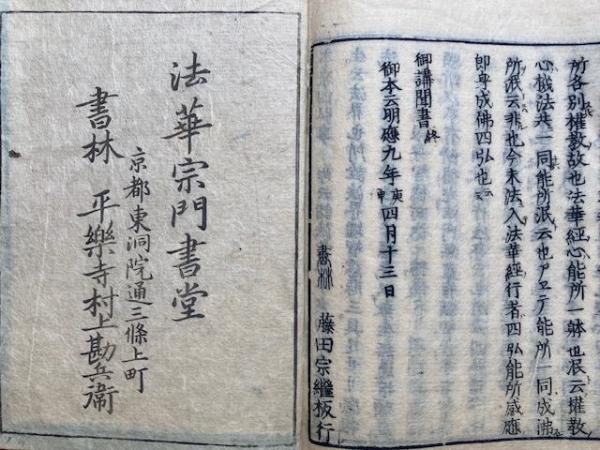 所各別權教故也法華經心能所一躰也泯云權教
心機法共一同能所泯云也 能所一同成佛
所泯云非也今末法入法華經行者四弘能所感應
即身成佛四弘也
御講聞書 終
御本云明應九年 庚申 四月十三日
書林 藤田宗繼板行
法華宗門書堂
京都東洞院通三條上町
書林 平樂寺村上勘兵衛